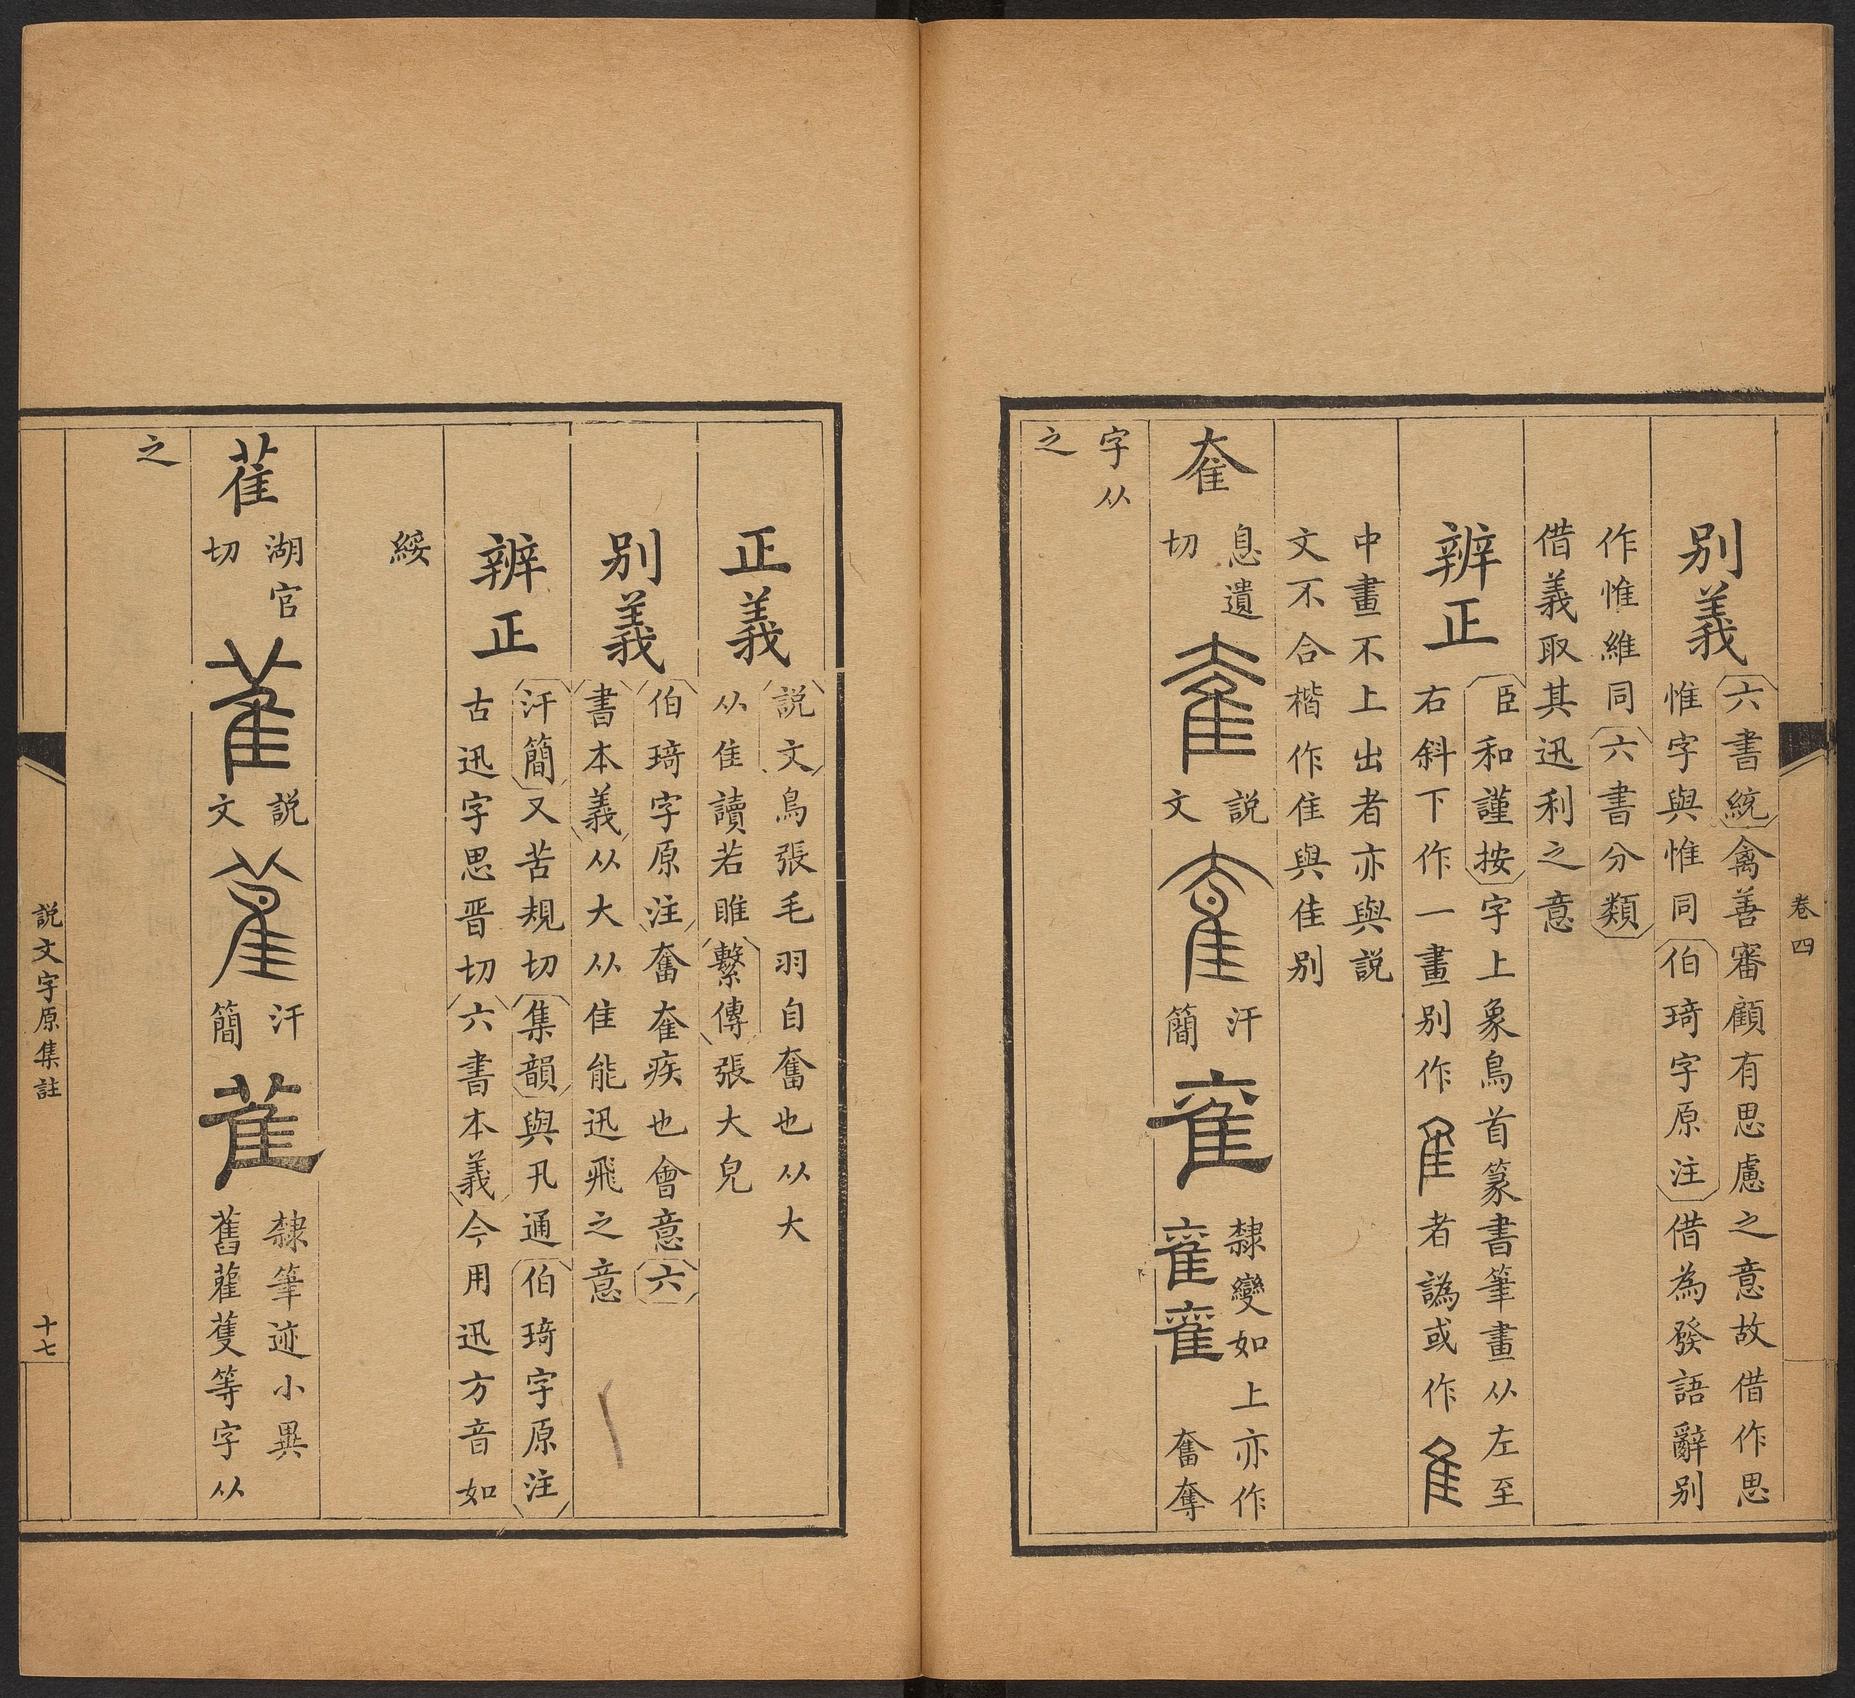 卷四
別義
六書統禽善審顧有思慮之意故借作思
惟字與惟同伯琦字原注借為發語辭別
作惟維同六書分類
借義取其迅利之意
辨正
臣和謹按字上象鳥首篆書筆畫从左至
右斜下作一畫別作隹者譌或作隹
中畫不上出者亦與説
文不合楷作隹與佳別
奞
息遺
切
奞
説
文
奞
汗
簡
奞
隸變如上亦作
奞奞 奮奪
字从
之
正義
説文鳥張毛羽自奮也从大
从隹讀若睢繫傳張大皃
別義
伯琦字原注奮奞疾也會意六
書本義从大从隹能迅飛之意
辨正
汗簡又苦規切集韻與卂通伯琦字原注
古迅字思晋切六書本義今用迅方音如
綏
雈
湖官
切
雈
説
文
雈
汗
簡
雈
隸筆迹小異
舊雚蒦等字从
之
説文字原集註
十七